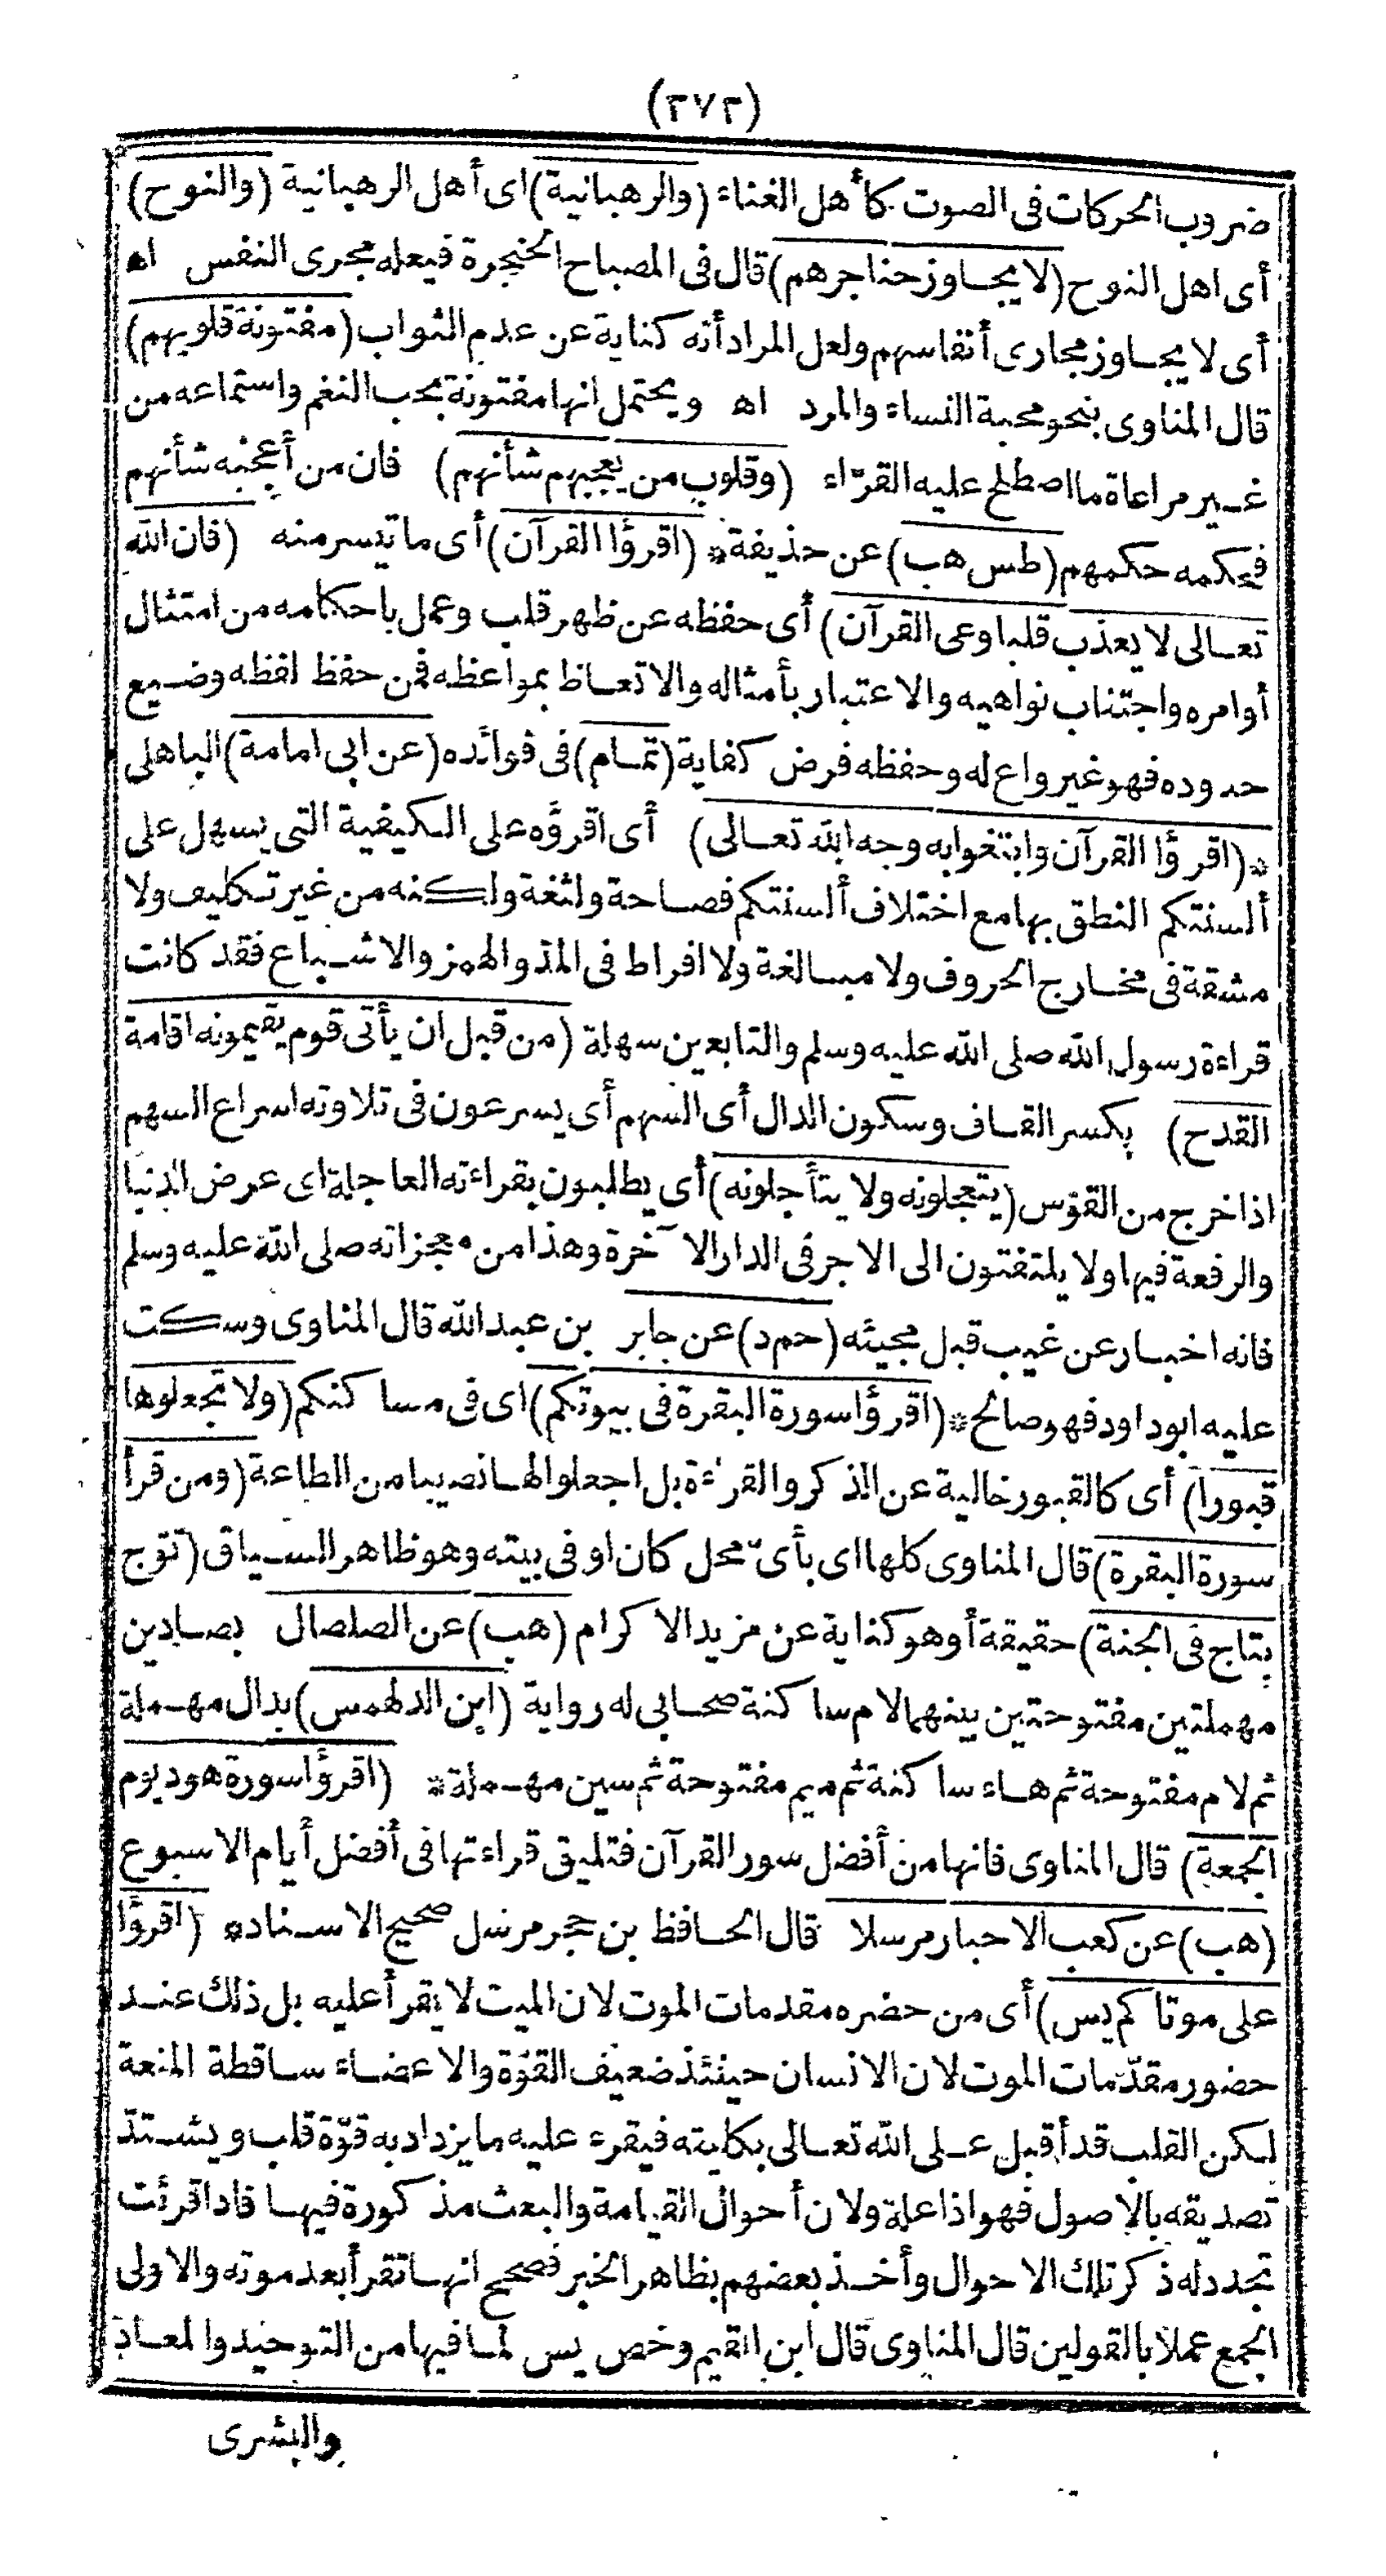 (٢٧٢)
ضروب الحركات فى الصوت كأهل الغناء (والرهبانية) اى أهل الرهبانية (والنوح)
أى اهل النوح (لا يجاوز حناجرهم) قال فى المصباح الحنجرة فيعله مجرى النفس اه
أى لا يجاوز مجارى أنفاسهم ولعل المراد أنه كناية عن عدم الثواب (مفتونة قلوبهم)
قال المناوى بنحو محبة النساء والمرد اه ويحتمل انها مفتونة بحب النغم واستماعه من
غير مراعاة ما اصطلح عليه القرّاء (وقلوب من يعجبهم شأنهم) فان من أعجبه شأنهم
فحكمه حكمهم (طس هب) عن حذيفة * (اقرؤا القرآن) أى ما تيسر منه (فان الله
تعالى لا يعذب قلبا وعى القرآن) أى حفظه عن ظهر قلب وعمل باحكامه من امتثال
أوامره واجتناب نواهيه والاعتبار بأمثاله والاتعاظ بمواعظه فمن حفظ لفظه وضيع
حدوده فهو غير واع له وحفظه فرض كفاية (تمام) فى فوائده (عن ابى امامة) الباهلى
* (اقرؤا القرآن وابتغوا به وجه الله تعالى) أى اقرؤه على الكيفية التى يسهل على
ألسنتكم النطق بها مع اختلاف ألسنتكم فصاحة ولثغة ولكنه من غير تكليف ولا
مشقة فى مخارج الحروف ولا مبالغة ولا افراط فى المد والهمز والاشباع فقد كانت
قراءة رسول الله صلى الله عليه وسلم والتابعين سهلة (من قبل ان يأتى قوم يقيمونه اقامة
القدح) بكسر القاف وسكون الدال أى السهم أى يسرعون فى تلاوته اسراع السهم
اذا خرج من القوس (يتعجلونه ولا يتأجلونه) أى يطلبون بقراءته العاجلة اى عرض الدنيا
والرفعة فيها ولا يلتفتون الى الاجر فى الدار الآخرة وهذا من معجزاته صلى الله عليه وسلم
فانه اخبار عن غيب قبل مجيئه (حم د) عن جابر بن عبد الله قال المناوى وسكت
عليه ابو داود فهو صالح * (اقرؤا سورة البقرة فى بيوتكم) اى فى مساكنكم (ولا تجعلوها
قبورا) أى كالقبور خالية عن الذكر والقرءة بل اجعلوا لها نصيبا من الطاعة (ومن قرأ
سورة البقرة) قال المناوى كلها اى بأىّ محل كان او فى بيته وهو ظاهر السياق (توّج
بتاج فى الجنة) حقيقة أو هو كناية عن مزيد الاكرام (هب) عن الصلصال بصادين
مهملتين مفتوحتين بينهما لام ساكنة صحابى له رواية (ابن الدلهمس) بدال مهملة
ثم لام مفتوحة ثم هاء ساكنة ثم ميم مفتوحة ثم سين مهملة * (اقرؤا سورة هود يوم
الجمعة) قال المناوى فانها من أفضل سور القرآن فتليق قراءتها فى أفضل أيام الاسبوع
(هب) عن كعب الاحبار مرسلا قال الحافظ بن حجر مرسل صحيح الاسناد * (اقرؤا
على موتاكم يس) أى من حضره مقدمات الموت لان الميت لا يقرأ عليه بل ذلك عند
حضور مقدّمات الموت لان الانسان حينئذ ضعيف القوّة والاعضاء ساقطة المنعة
لكن القلب قد أقبل على الله تعالى بكليته فيقرء عليه ما يزداد به قوّة قلب ويشتدّ
تصديقه بالاصول فهو اذا علة ولان أحوال القيامة والبعث مذكورة فيها فاذا قرئت
تجدد له ذكر تلك الاحوال وأخذ بعضهم بظاهر الخبر فصحح انها تقرأ بعد موته والاولى
الجمع عملا بالقولين قال المناوى قال ابن القيم وخص يس لما فيها من التوحيد والمعاد
والبشرى